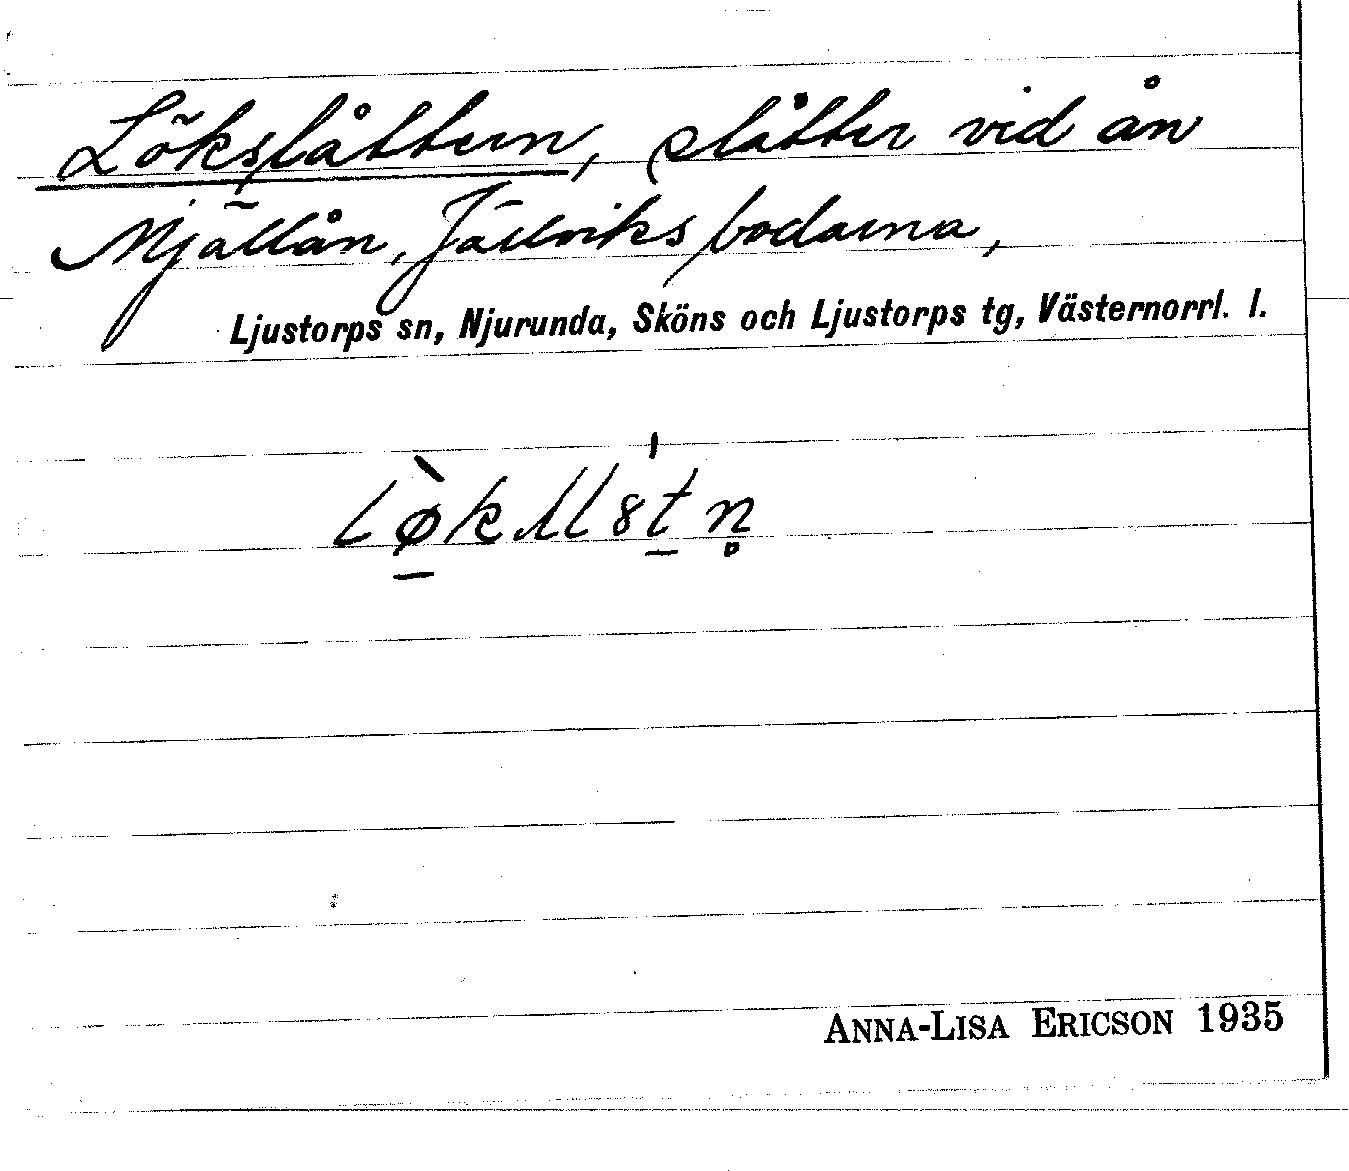 Lökslåttern, slåtter vid ån
Mjällån, Jällviksbodarna,
Ljustorps sn, Njurunda, Sköns och Ljustorps tg, Västernorrl. l.
ANNA-LISA ERICSON 1935